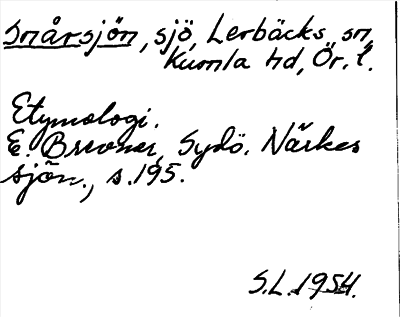 Snårsjön, sjö, Lerbäcks sn,
Kumla hd, Ör. l.
Etymologi.
E. Brevner, Sydö. Närkes
sjön., s. 195.
S.L. 1954.